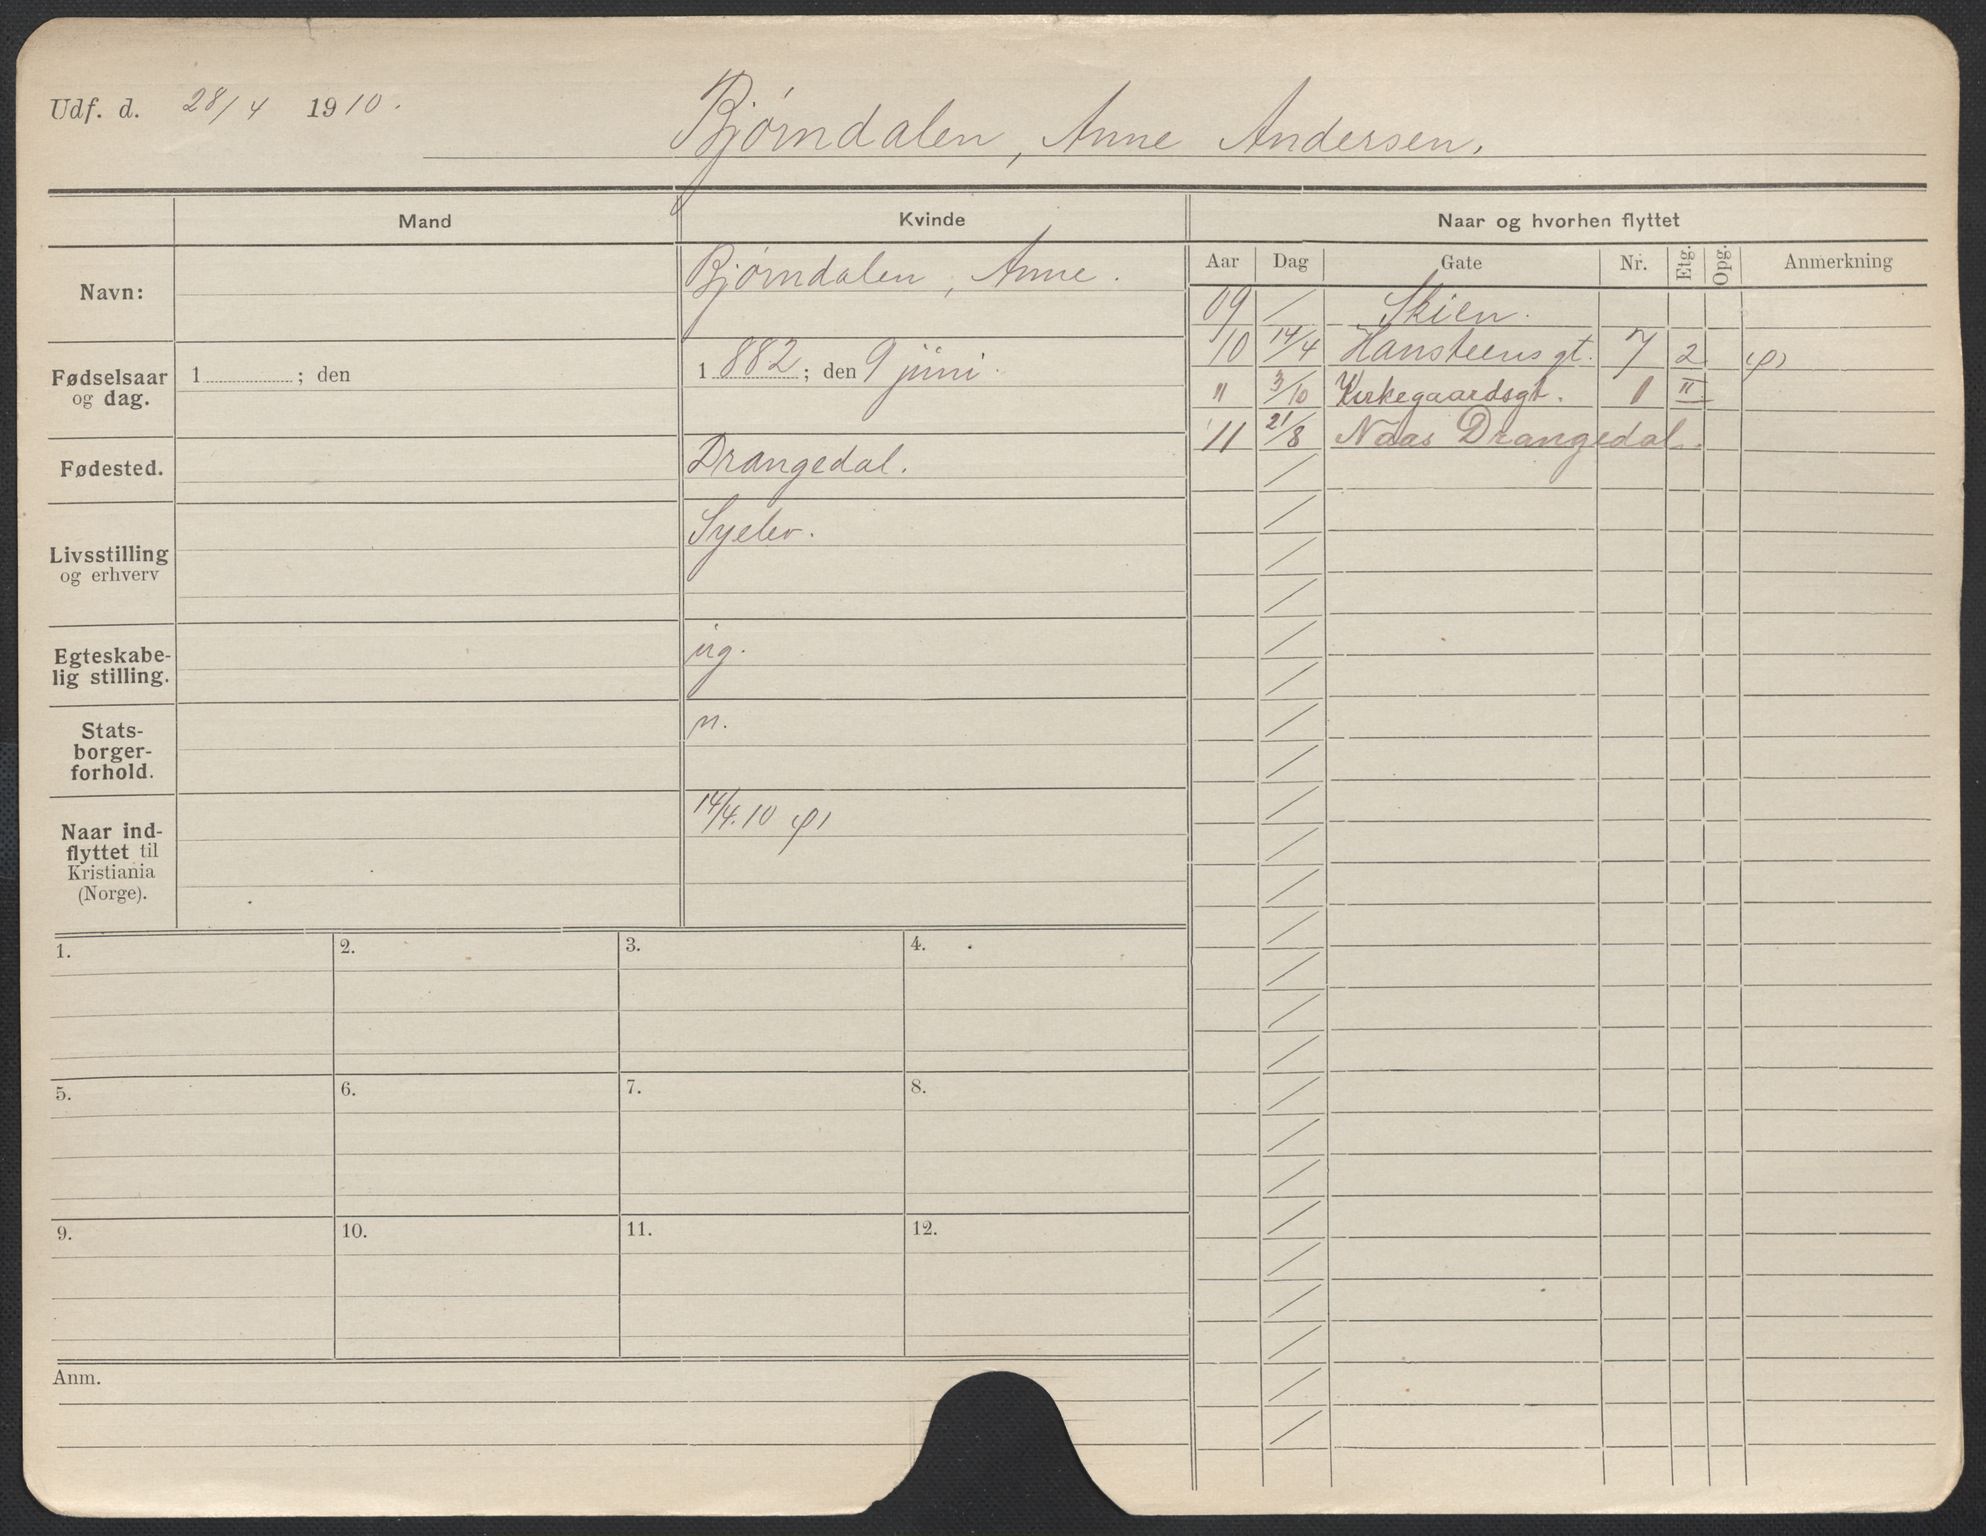 Udf. d. 28/4 1910.
Bjørndalen, Anne Andersen.
Mand
Kvinde
Naar og hvorhen flyttet
Navn:
Bjørndalen, Anne.
Aar Dag Gate Nr. Etg. Opg. Anmerkning
09 / Skien.
10 14/4 Hansteens gt. 7 2
" 3/10 Kirkegaardsgt. 1 II
11 21/8 Naas Drangedal.
Fødselsaar
og dag.
1 ; den
1882; den 9 juni.
Fødested.
Drangedal.
Livsstilling
og erhverv
Syelev.
Egteskabe-
lig stilling.
ug.
Stats-
borger-
forhold.
n.
Naar ind-
flyttet til
Kristiania
(Norge).
14/4.10
1. 2. 3. 4.
5. 6. 7. 8.
9. 10. 11. 12.
Anm.